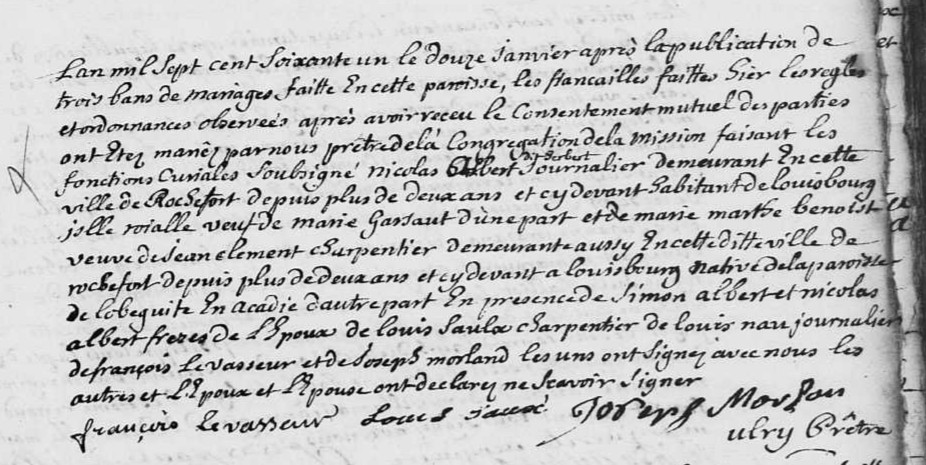 Lan mil Sept cent Soixante un le douze janvier après la publication de
trois bans de mariages faitte En cette paroisse, les fiancailles faittes hier les regles
et ordonnances observeés aprés avoir receu le Consentement mutuel des parties
ont Etez mariéz par nous prêtre de la Congregation de la Mission faisant les
dit Herbert
fonctions Curiales Soubsigné nicolas Albert Journalier demeurant En cette
ville de Rochefort depuis plus de deux ans et cy devant habitant de louisbourg
jslle roialle veuf de marie Gassaut d'une part et de marie marthe benoist
veuve de jean clement charpentier demeurante aussy En cette ditte ville de
rochefort depuis plus de deux ans et cy devant a louisbourg native de la paroisse
de Cobeguite En Acadie d'autre part En presence de Simon albert et nicolas
albert freres de l'Epoux de louis Saulx charpentier de louis nau journalier
de françois Levasseur et de Joseph morland les uns ont Signez avec nous les
autres et l'Epoux et l'Epouse ont declarez ne Scavoir Signer
françois levasseur Louis Saux Joseph
ulry Prêtre